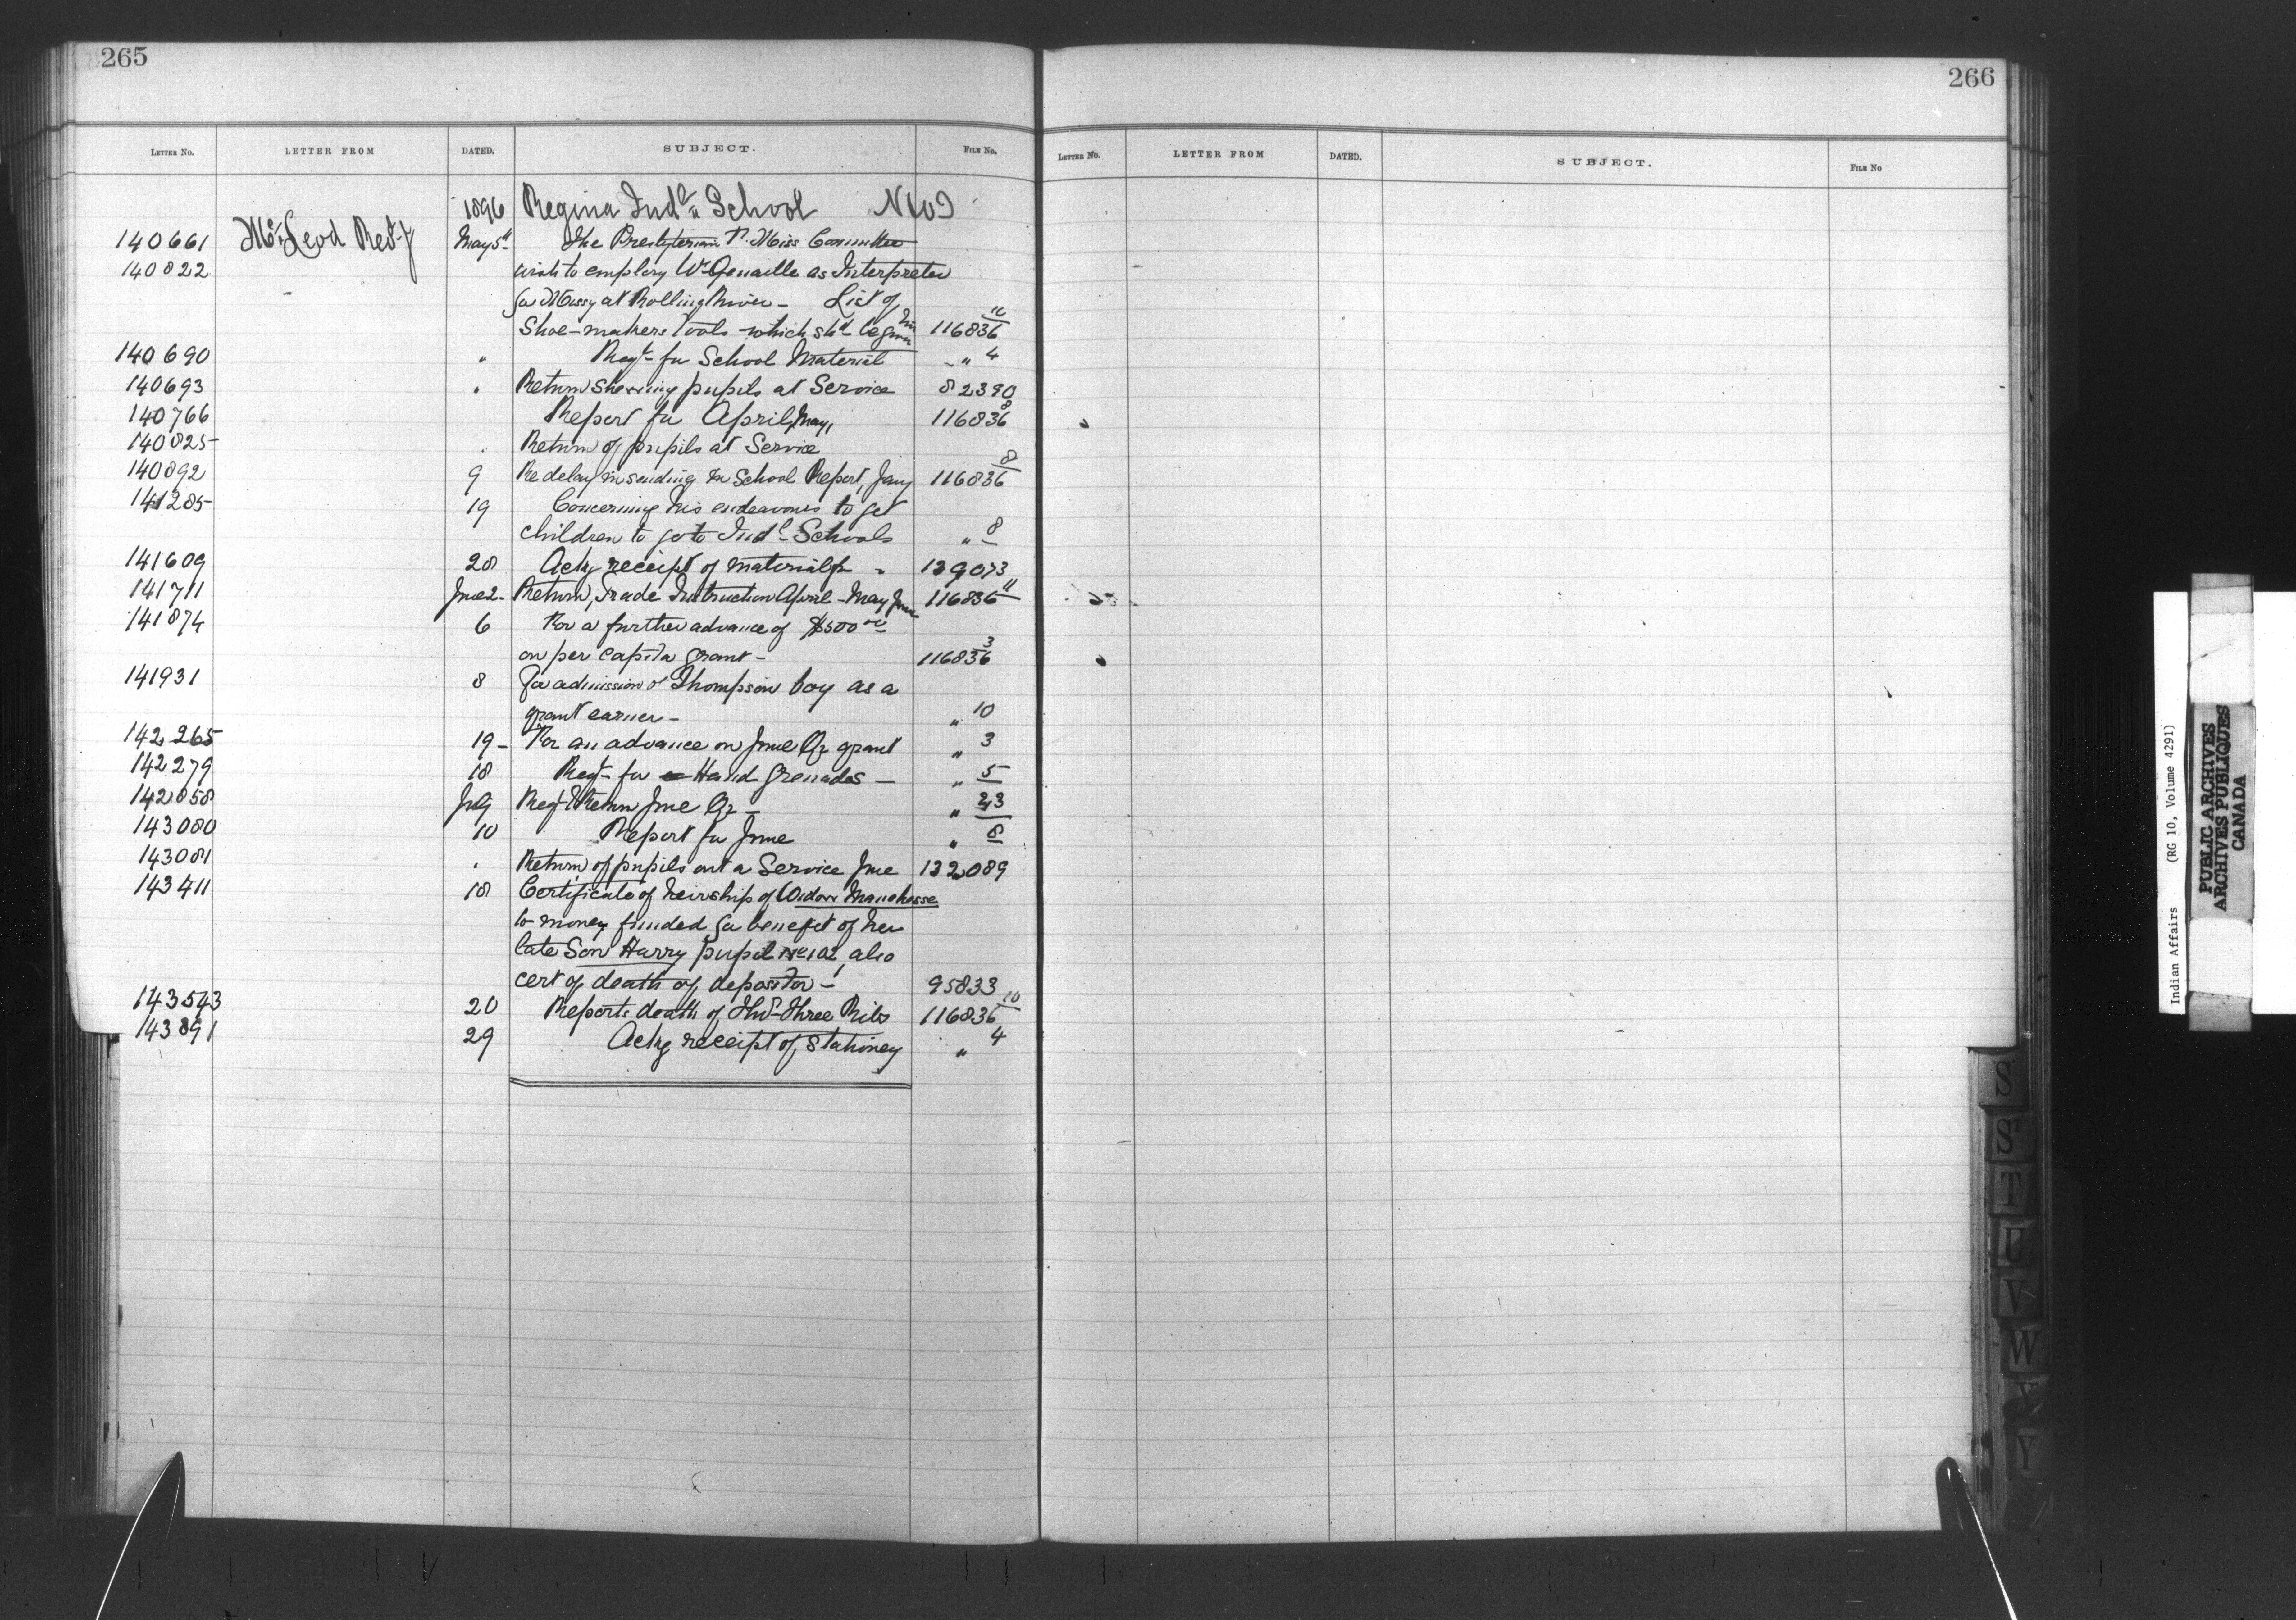 265
LETTER NO. LETTER FROM DATED. SUBJECT. FILE NO.
1896 Regina Indl School
140661 McLeod Revd J May 5th The Presbyterian F. Miss Committee
140822 wish to employ Wm Genaille as Interpreter
for Missy at Rolling River – List of
Shoe-makers Tools which shd be given him 116836 10
140690 " Reqt for School Material " 4
140693 " Return showing pupils at Service 82390
140766 Report for April, May, 116836 8
140825 " Return of pupils at Service
140892 9 Re delay in sending in School Report, Jany 116836 8
141285 19 Concerning his endeavours to get
children to go to Indl Schools " 8
141609 28 Ackg receipt of material 139073
141711 June 2 Return, Trade Instruction April - May June 116836 11
141874 6 For a further advance of $500 00
on per capita grant – 116836 3
141931 8 For admission of Thompson boy as a
grant earner – " 10
142265 19 – For an advance on June Qr grant " 3
142279 18 Reqt for Hand Grenades – " 5
142858 Return June Qr –
143080 10 Report for June " 8
143081 " Return of pupils out a Service June 132089
143411 18 Certificate of heirship of Widow Manahasse
to money funded for benefit of her
late Son Harry pupil No 102, also
cert of death of depositor – 95833
143543 20 Reports death of Thos Three Ribs 116836 10
143891 29 Ackg receipt of stationey " 4
266
LETTER NO. LETTER FROM DATED. SUBJECT. FILE NO
S
St
T
U
V
W
Y
Indian Affairs (RG 10, Volume 4291)
PUBLIC ARCHIVES
ARCHIVES PUBLIQUES
CANADA